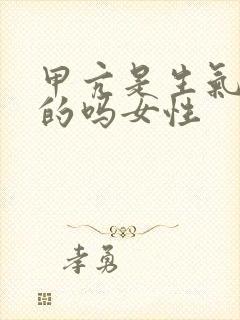 甲亢是生氣
的吗女性
李勇